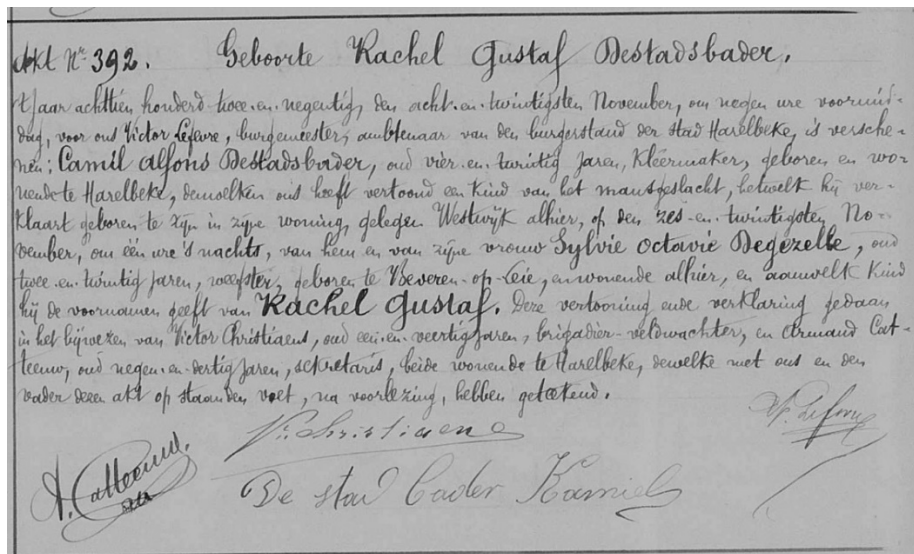 Akt Nr 392. Geboorte Rachel Gustaf Destadsbader.
t'jaar achttien honderd twee-en-negentig, den acht-en-twintigsten November, om negen ure voormid-
dag, voor ons Victor Lefevre, burgemeester, ambtenaar van den burgerstand der stad Harelbeke, is versche-
nen: Camil Alfons Destadsbader, oud vier-en-twintig jaren, Kleermaker, geboren en wo-
nende te Harelbeke, dewelken ons heeft vertoond een Kind van het mansgeslacht, hetwelk hij ver-
klaart geboren te zijn in zijne woning, gelegen Westwijk alhier, op den zes-en-twintigsten No-
vember, om één ure 's nachts, van hem en van zijne vrouw Sylvie Octavie Degezelle, oud
twee-en-twintig jaren, weefster, geboren te Beveren-op-Leie, en wonende alhier, en aan welk Kind
hij de voornamen geeft van Rachel Gustaf. Deze vertooning ende verklaring gedaan
in het bijwezen van Victor Christiaens, oud een-en-veertig jaren, brigadier-veldwachter, en Armand Cat-
teeuw, oud negen-en-dertig jaren, secretaris, beide wonende te Harelbeke, dewelke met ons en den
vader dezen akt op staanden voet, na voorlezing, hebben geteekend.
Vr. Christiaens
Vr. Lefevre
A. Catteeuw
De stad bader Kamiel